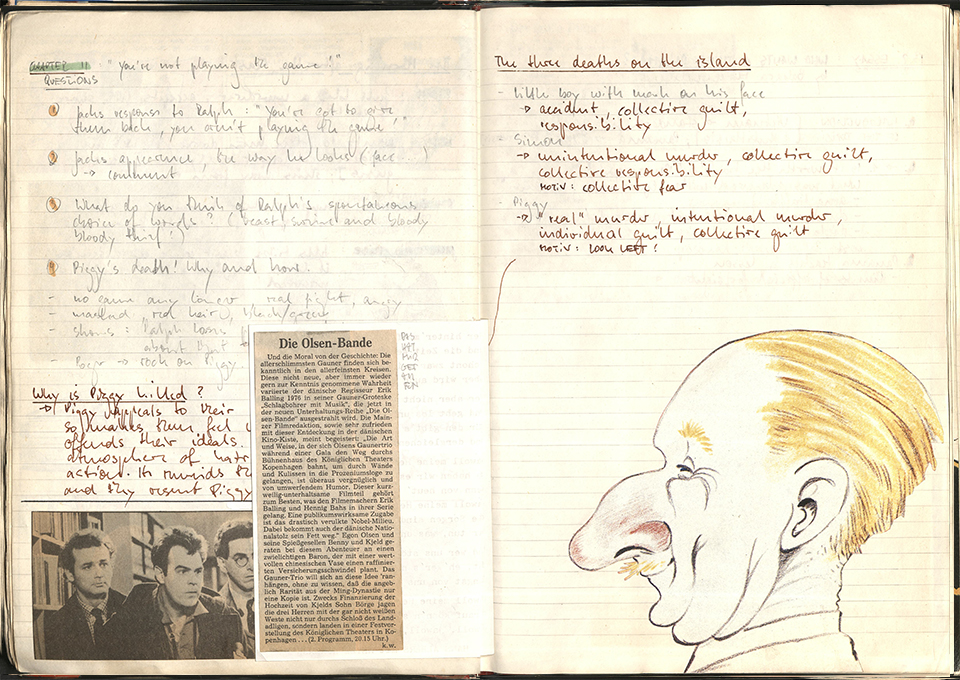 CHAPTER 11: "You're not playing the game!"
QUESTIONS
1 Jacks response to Ralph: "You're got to give
them back, you aren't playing the game,"
2 Jacks appearance, the way he looks (face...)
→ comment
3 What do you think of Ralph's spontaneous
choice of words? (beast, swine and bloody
bloody thief!)
4 Piggy's death! Why and how.
- no game any longer, real fight, angry
- red hair, black/green
- Ralph
about
- Roger → rock on Piggy
Why is Piggy killed?
→ Piggy appeals to their
so makes them feel
offends their ideals.
atmosphere of
action. It reminds
and they resent Piggy
Die Olsen-Bande
Und die Moral von der Geschichte: Die
allerschlimmsten Gauner finden sich be-
kanntlich in den allerfeinsten Kreisen.
Diese nicht neue, aber immer wieder
gern zur Kenntnis genommene Wahrheit
variierte der dänische Regisseur Erik
Balling 1976 in seiner Gauner-Groteske
„Schlagbohrer mit Musik", die jetzt in
der neuen Unterhaltungs-Reihe „Die Ol-
sen-Bande" ausgestrahlt wird. Die Main-
zer Filmredaktion, sowie sehr zufrieden
mit dieser Entdeckung in der dänischen
Kino-Kiste, meint begeistert: „Die Art
und Weise, in der sich Olsens Gaunertrio
während einer Gala den Weg durchs
Bühnenhaus des Königlichen Theaters
Kopenhagen bahnt, um durch Wände
und Kulissen in die Prozeniumsloge zu
gelangen, ist überaus vergnüglich und
von umwerfendem Humor. Dieser kurz-
weilig-unterhaltsame Filmteil gehört
zum Besten, was den Filmemachern Erik
Balling und Hennig Bahs in ihrer Serie
gelang. Eine publikumswirksame Zugabe
ist das drastisch verulkte Nobel-Milieu.
Dabei bekommt auch der dänische Natio-
nalstolz sein Fett weg." Egon Olsen und
seine Spießgesellen Benny und Kjeld ge-
raten bei diesem Abenteuer an einen
zwielichtigen Baron, der mit einer wert-
vollen chinesischen Vase einen raffinier-
ten Versicherungsschwindel plant. Das
Gauner-Trio will sich an diese Idee 'ran-
hängen, ohne zu wissen, daß die angeb-
lich Rarität aus der Ming-Dynastie nur
eine Kopie ist. Zwecks Finanzierung der
Hochzeit von Kjelds Sohn Börge jagen
die drei Herren mit der gar nicht weißen
Weste nicht nur durchs Schloß des Land-
adligen, sondern landen in einer Festvor-
stellung des Königlichen Theaters in Ko-
penhagen . . . (2. Programm, 20.15 Uhr.)
k.w.
The three deaths on the island
- Little boy with mark on his face
→ accident, collective guilt,
responsibility
- Simon
→ unintentional murder, collective guilt,
collective responsibility
MOTIV: collective fear
- Piggy
→ "real" murder, intentional murder,
individual guilt, collective guilt
MOTIV: look LEFT!